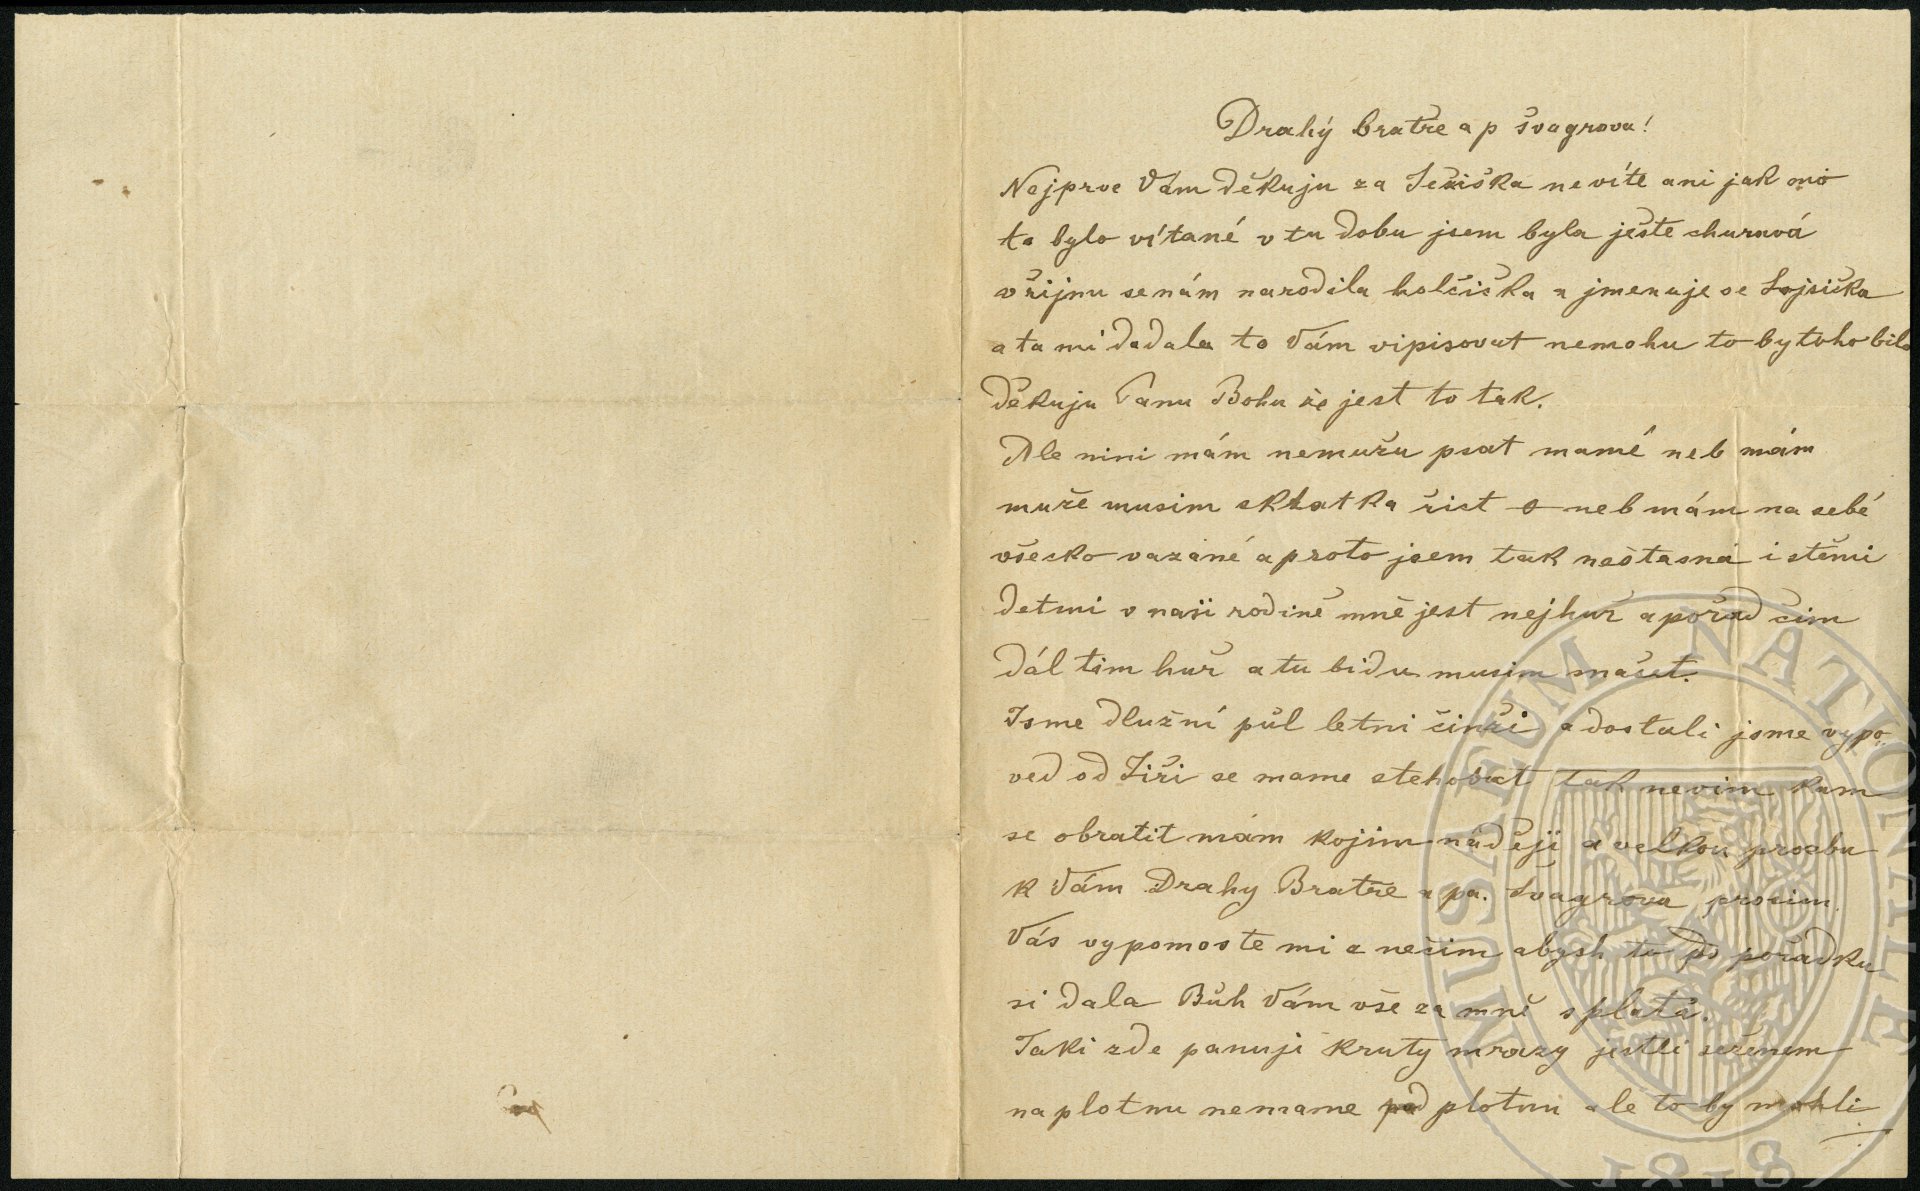 Drahý bratře a p švagrova!
Nejprve Vám děkuju za Ježiška nevíte ani jak mě
to bylo vítané v tu dobu jsem byla ještě churavá
v řijnu se nám narodila holčička a jmenuje se Lojsička
a ta mi dodala to Vám vipisovat nemohu to by toho bilo
děkuju Panu Bohu že jest to tak.
Ale nini mám nemužu psat mamě neb mám
muže musim zkratka řict neb mám na sebé
všecko vazáné a proto jsem tak neštasná i stěmi
detmi v naši rodině mně jest nejhuř a pořad čim
dál tim huř a tu bidu musim snašet.
Jsme dlužní půl letni činži a dostali jsme vypo-
ved od Jiři se mame stehobat tak nevim kam
se obratit mám kojim naději a velkou prosbu
k Vám Drahy Bratře a pa. Švagrova prosim
Vás vypomoste mi z nečim abysh to do pořadku
si dala Bůh Vám vše za mně splatá.
Taki zde panuji kruty mrazy jestli seženem
na plotnu nemame pod plotnu ale to by mohli
MUSAEUM NATIONALE
1818